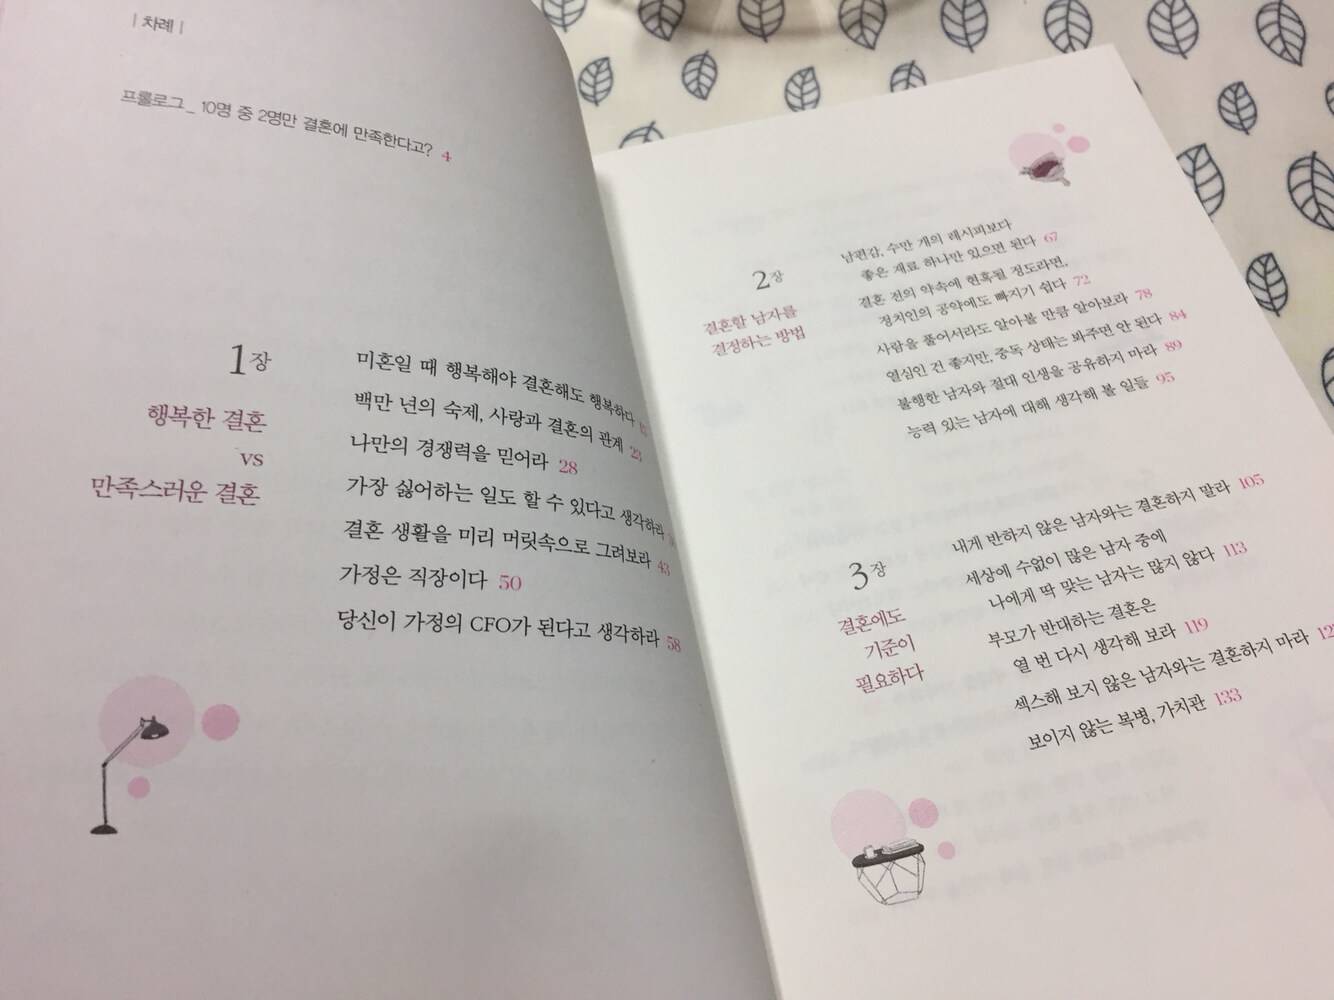 | 차례 |
프롤로그_ 10명 중 2명만 결혼에 만족한다고? 4
1장
행복한 결혼
vs
만족스러운 결혼
미혼일 때 행복해야 결혼해도 행복하다
백만 년의 숙제, 사랑과 결혼의 관계 23
나만의 경쟁력을 믿어라 28
가장 싫어하는 일도 할 수 있다고 생각하라
결혼 생활을 미리 머릿속으로 그려보라 43
가정은 직장이다 50
당신이 가정의 CFO가 된다고 생각하라 58
2장
결혼할 남자를
결정하는 방법
남편감, 수만 개의 레시피보다
좋은 재료 하나만 있으면 된다 67
결혼 전의 약속에 현혹될 정도라면,
정치인의 공약에도 빠지기 쉽다 72
사람을 풀어서라도 알아볼 만큼 알아보라 78
열심인 건 좋지만, 중독 상태는 봐주면 안 된다 84
불행한 남자와 절대 인생을 공유하지 마라 89
능력 있는 남자에 대해 생각해 볼 일들 95
3장
결혼에도
기준이
필요하다
내게 반하지 않은 남자와는 결혼하지 말라 105
세상에 수없이 많은 남자 중에
나에게 딱 맞는 남자는 많지 않다 113
부모가 반대하는 결혼은
열 번 다시 생각해 보라 119
섹스해 보지 않은 남자와는 결혼하지 마라
보이지 않는 복병, 가치관 133